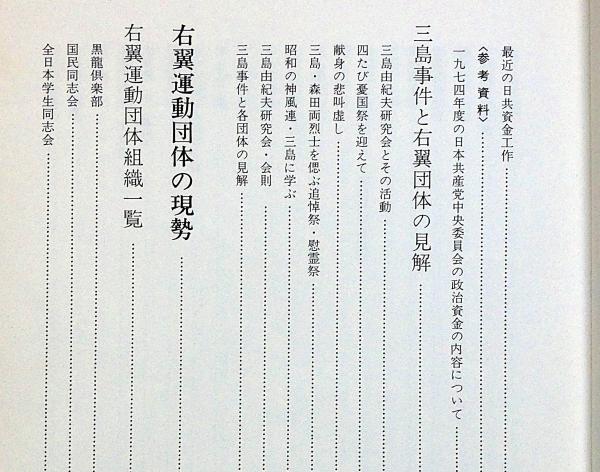 最近の日共資金工作
〈参考資料〉
一九七四年度の日本共産党中央委員会の政治資金の内容について
三島事件と右翼団体の見解
三島由紀夫研究会とその活動
四たび憂国祭を迎えて
献身の悲叫虚し
三島・森田両烈士を偲ぶ追悼祭・慰霊祭
昭和の神風連・三島に学ぶ
三島由紀夫研究会・会則
三島事件と各団体の見解
右翼運動団体の現勢
右翼運動団体組織一覧
黒龍倶楽部
国民同志会
全日本学生同志会